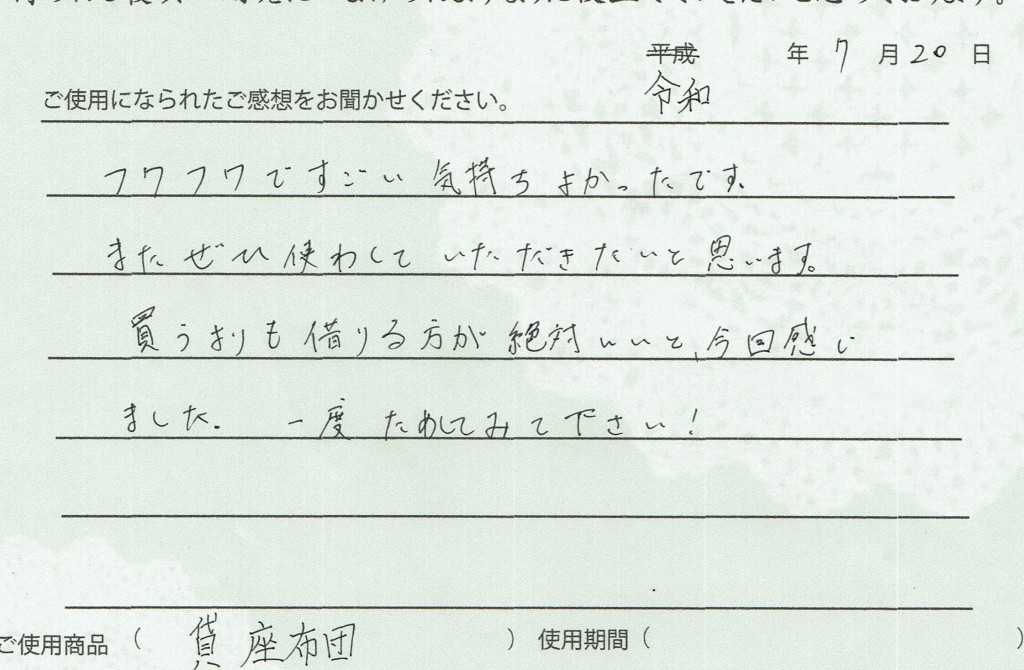 平成 年 7 月 20 日
令和
ご使用になられたご感想をお聞かせください。
フワフワですごい 気持ちよかったです。
またぜひ使わして いただきたいと思います。
買うよりも借りる方が 絶対いいと、今回感じ
ました。 一度ためしてみて下さい！
ご使用商品 （ 貸座布団 ） 使用期間（ ）